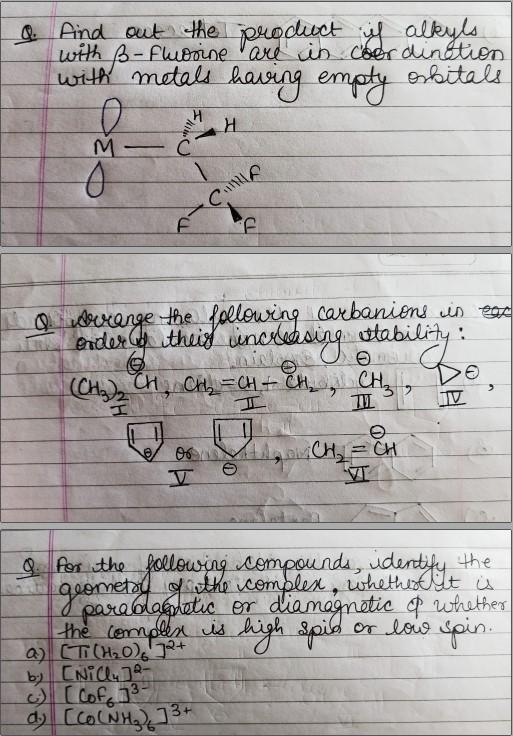 Q. Find out the product if alkyls
with β-Fluorine are in coordination
with metals having empty orbitals
H
H
M — C
C F
F F
Q. Arrange the following carbanions in
order of their increasing stability:
(CH₃)₂ CH⊖, CH₂=CH–CH₂⊖, CH₃⊖, ⊖,
I II III IV
⊖ or ⊖, CH₂=CH⊖
V VI
Q. For the following compounds, identify the
geometry of the complex, whether it is
paramagnetic or diamagnetic & whether
the complex is high spin or low spin.
a) [Ti(H₂O)₆]²⁺
b) [NiCl₄]²⁻
c) [CoF₆]³⁻
d) [Co(NH₃)₆]³⁺